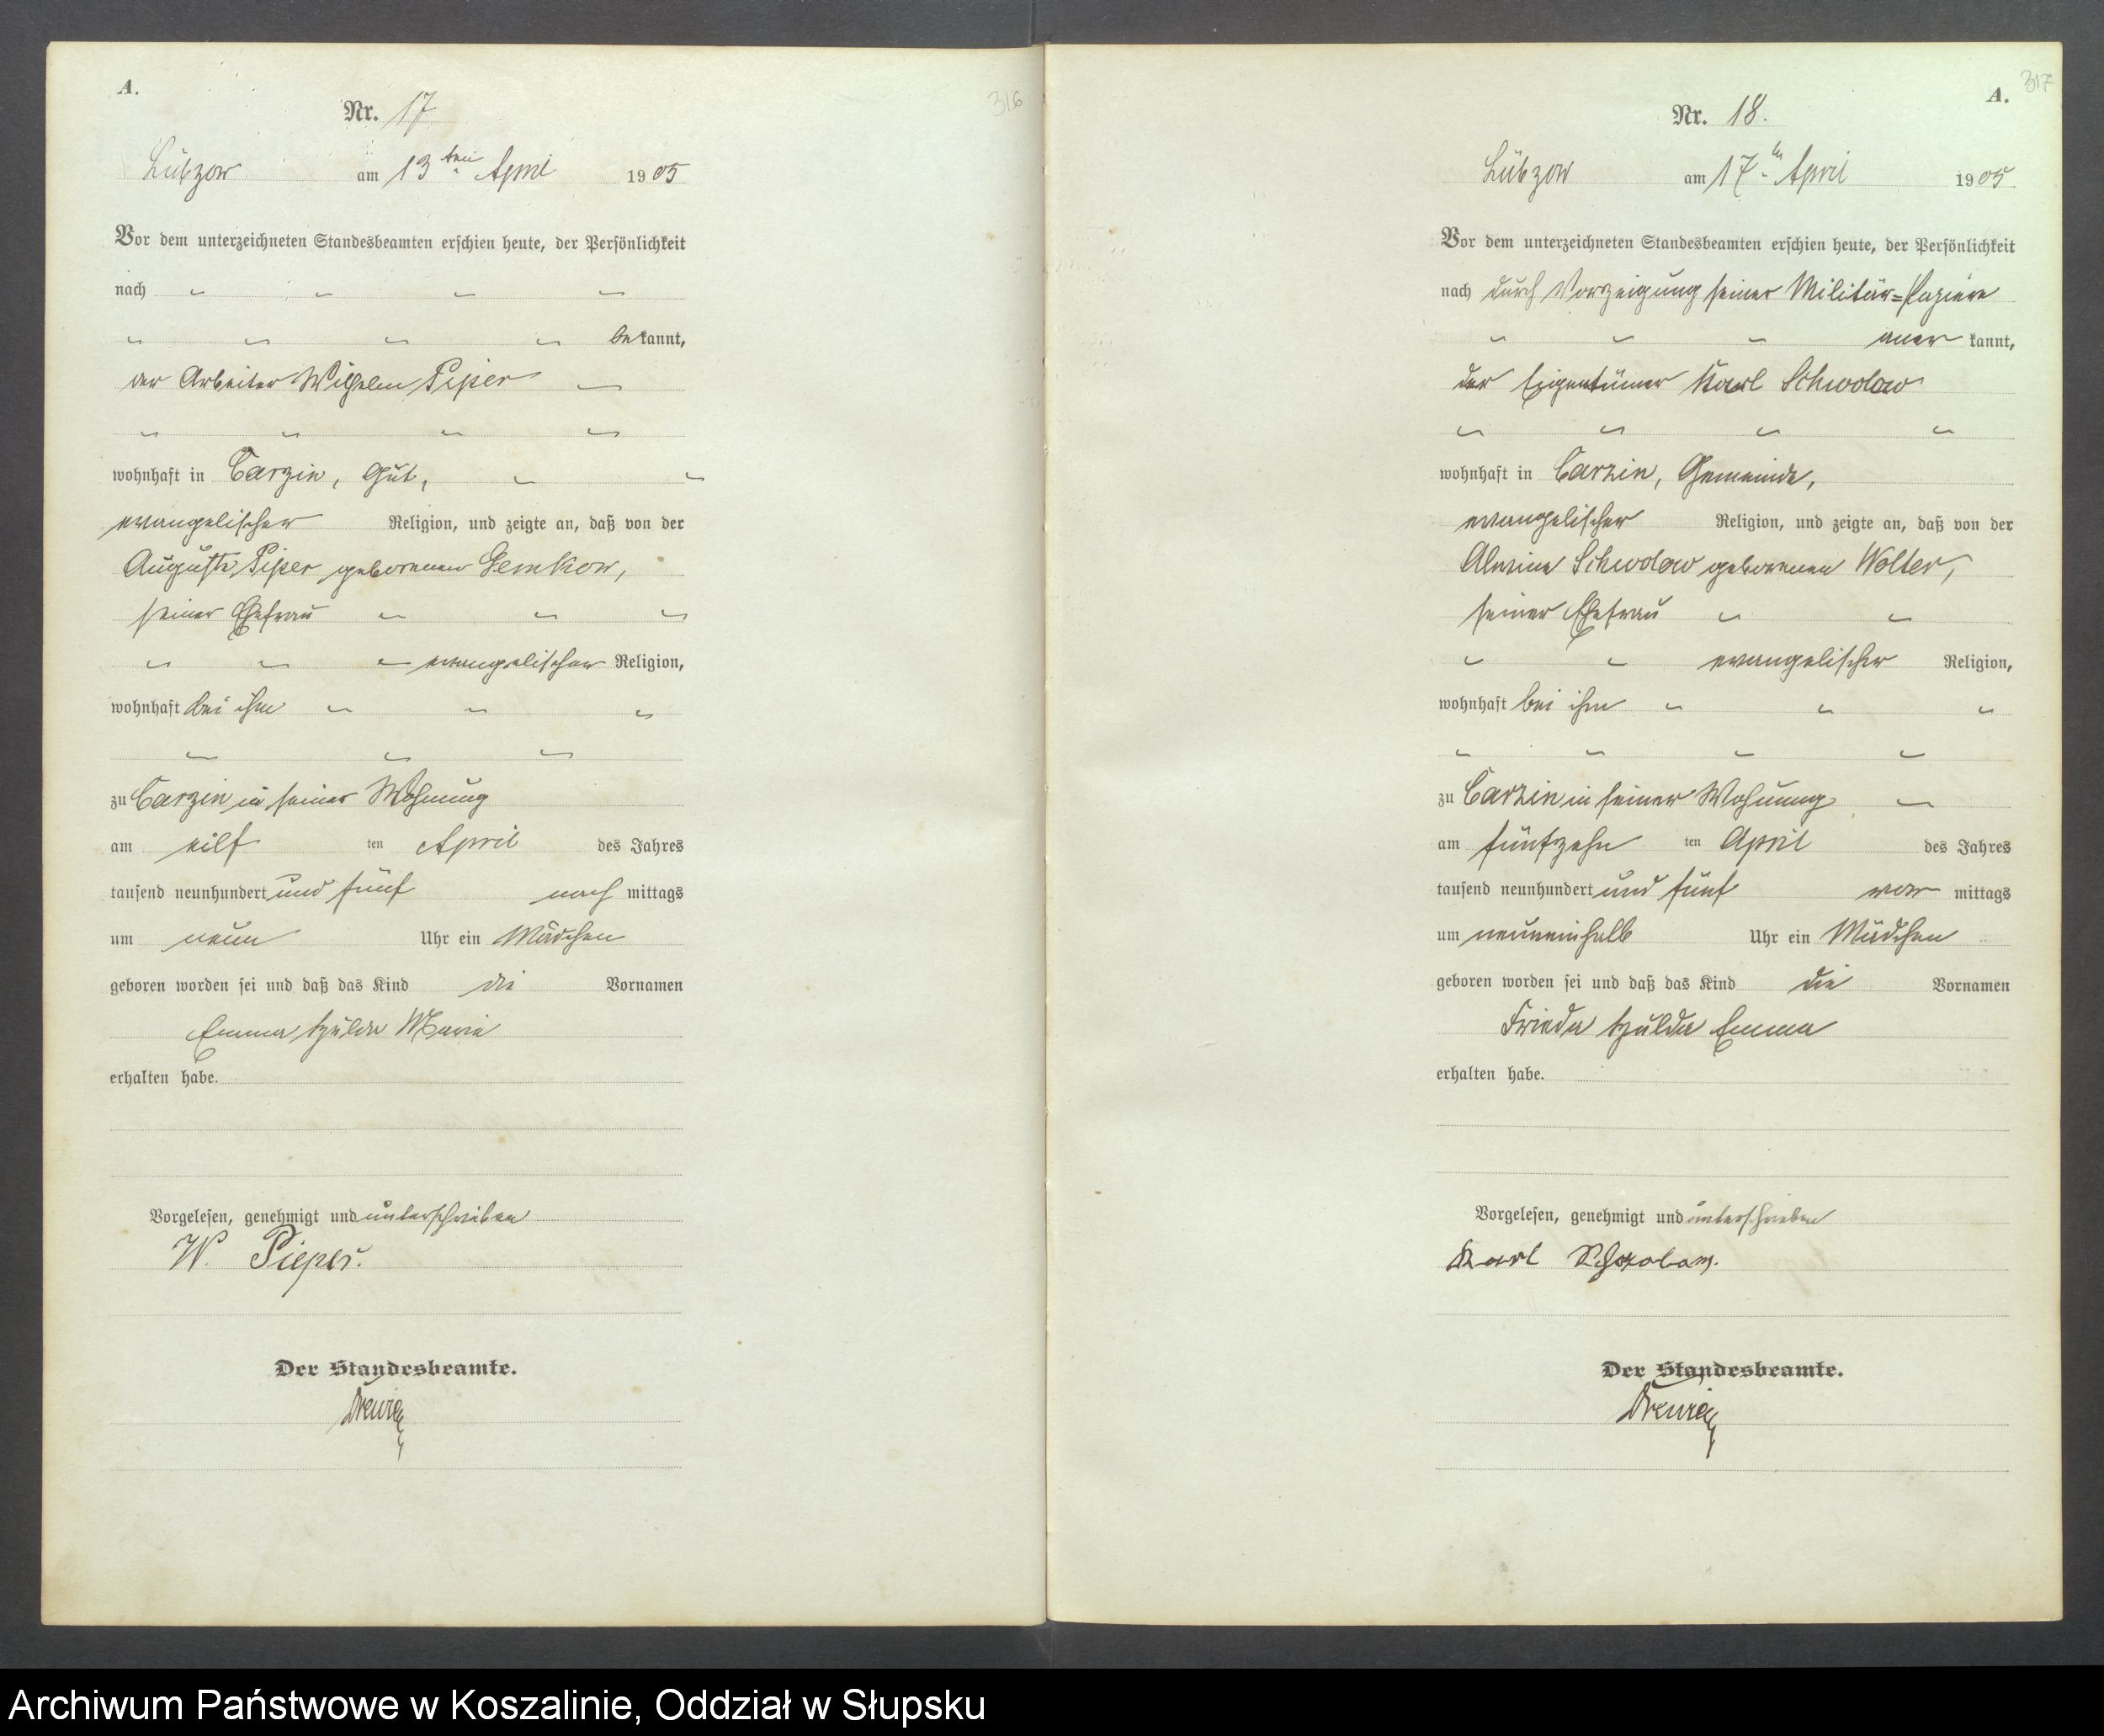 A.
316
Nr. 17
Lübzow am 13ten April 1905
Vor dem unterzeichneten Standesbeamten erschien heute, der Persönlichkeit
nach
bekannt,
der Arbeiter Wilhelm Piper
wohnhaft in Carzin, Gut,
evangelischer Religion, und zeigte an, daß von der
Auguste Piper geborenen Lemkow,
seiner Ehefrau
evangelischer Religion,
wohnhaft bei ihm
zu Carzin in seiner Wohnung
am eilf ten April des Jahres
tausend neunhundert und fünf nach mittags
um neun Uhr ein Mädchen
geboren worden sei und daß das Kind die Vornamen
Emma Hulda Marie
erhalten habe.
Vorgelesen, genehmigt und unterschrieben
W. Pieper.
Der Standesbeamte.
317
A.
Nr. 18.
Lübzow am 17ten April 1905.
Vor dem unterzeichneten Standesbeamten erschien heute, der Persönlichkeit
nach durch Vorzeigung seiner Militär=Papiere
anerkannt,
der Eigentümer Karl Schwolow
wohnhaft in Carzin, Gemeinde,
evangelischer Religion, und zeigte an, daß von der
Alwine Schwolow geborenen Wolter,
seiner Ehefrau
evangelischer Religion,
wohnhaft bei ihm
zu Carzin in seiner Wohnung
am fünfzehn ten April des Jahres
tausend neunhundert und fünf vor mittags
um neuneinhalb Uhr ein Mädchen
geboren worden sei und daß das Kind die Vornamen
Frieda Hulda Emma
erhalten habe.
Vorgelesen, genehmigt und unterschrieben
Karl Schwolow.
Der Standesbeamte.
Archiwum Państwowe w Koszalinie, Oddział w Słupsku